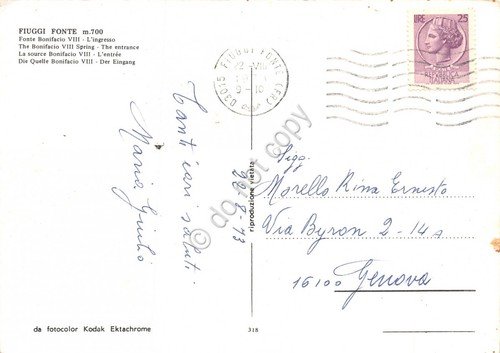 FIUGGI FONTE m.700
Fonte Bonifacio VIII - L'ingresso
The Bonifacio VIII Spring - The entrance
La source Bonifacio VIII - L'entrée
Die Quelle Bonifacio VIII - Der Eingang
03015 FIUGGI FONTE (FR)
LIRE 25
Tanti cari saluti
Maria Giulio
22-8-73
riproduzione vietata
Sigg.
Morello Rina Ernesto
Via Byron 2-14a
16100 Genova
da fotocolor Kodak Ektachrome
318
do not copy